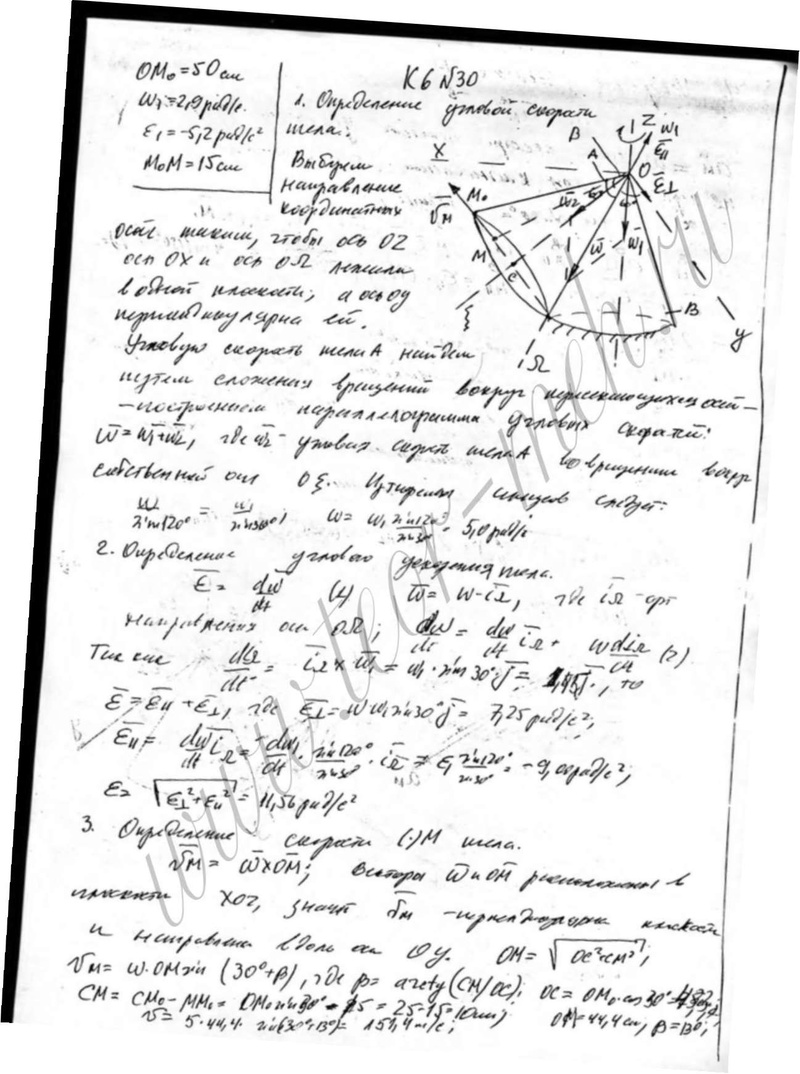 К6 №30
OM₀ = 50 см
ω₁ = 2,9 рад/с.
ε₁ = -5,2 рад/с²
M₀M = 15 см
1. Определение угловой скорости
тела.
Выберем
направление
координатных
осей таким, чтобы ось OZ
ось OX и ось OΩ лежали
в одной плоскости, а ось OY
перпендикулярна ей.
Угловую скорость тела A найдем
путем сложения вращений вокруг пересекающихся осей -
- построением параллелограмма угловых скоростей:
ω̄ = ω̄₁ + ω̄₂, где ω̄₂ - угловая скорость тела A во вращении вокруг
собственной оси Oξ. Из теоремы синусов следует:
ω/sin120° = ω₁/sin30°, ω = ω₁ sin120°/sin30° = 5,0 рад/с
2. Определение углового ускорения тела.
ε̄ = dω̄/dt (1) ω̄ = ω·īΩ, где īΩ - орт
направления оси OΩ; dω̄/dt = dω/dt īΩ + ω dīΩ/dt (2).
Так как = īΩ × ω̄₁ = ω₁ · sin30° · j̄ = 1,45 j̄, то
ε̄ = ε̄II + ε̄⊥, где ε̄⊥ = ω ω₁ sin30° j̄ = 7,25 рад/с²;
ε̄II = dω/dt īΩ = dω₁/dt sin120°/sin30° · īΩ = ε₁ sin120°/sin30° = -9,00 рад/с²;
ε = √(ε⊥² + εII²) = 11,56 рад/с²
3. Определение скорости (·)M тела.
v̄M = ω̄ × OM; Векторы ω̄ и OM расположены в
плоскости XOZ, значит v̄M - перпендикулярна плоскости
и направлена вдоль оси OY. OM = √(OC² + CM²);
vM = ω · OM sin (30° + β), где β = arctg (CM/OC); OC = OM₀ · cos30° =
CM = CM₀ - MM₀ = OM₀ sin30° - 15 = 25 - 15 = 10 см;
OM = 44,4 см, β = 13°;
v = 5 · 44,4 · sin(30° + 13°) = 151,4 м/с;
X
B
A
Z
ω̄₁
ε̄II
O
ε̄⊥
v̄M
M₀
ω̄₂
M
C
ω̄
ω̄₁
ξ
Ω
B
y
www.teor-meh.ru